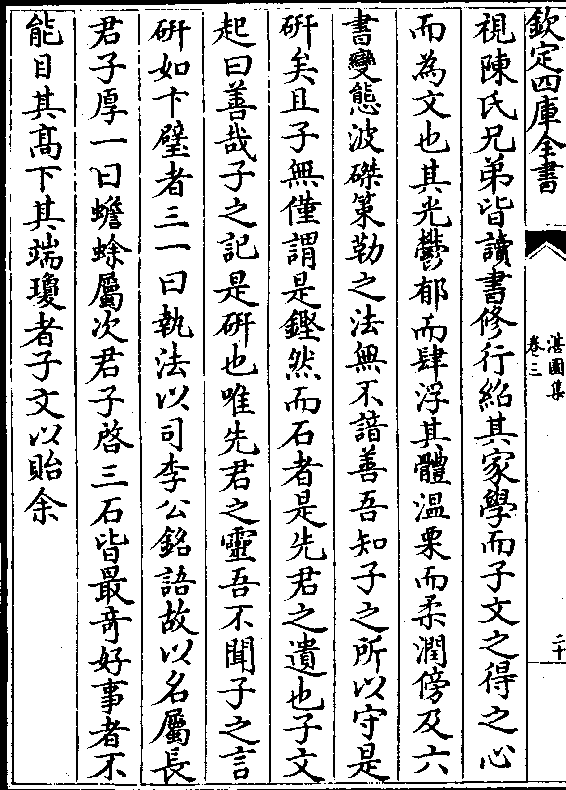 欽定四庫全書
湛園集
卷三
二十
視陳氏兄弟皆讀書修行紹其家學而子文之得之心
而為文也其光鬱郁而肆浮其體溫栗而柔潤傍及六
書變態波磔策勒之法無不諳善吾知子之所以守是
硏矣且子無僅謂是鏗然而石者是先君之遺也子文
起曰善哉子之記是硏也唯先君之靈吾不聞子之言
硏如卞璧者三一曰執法以司李公銘語故以名屬長
君子厚一曰蟾蜍屬次君子啓三石皆最竒好事者不
能目其髙下其端瓊者子文以貽余